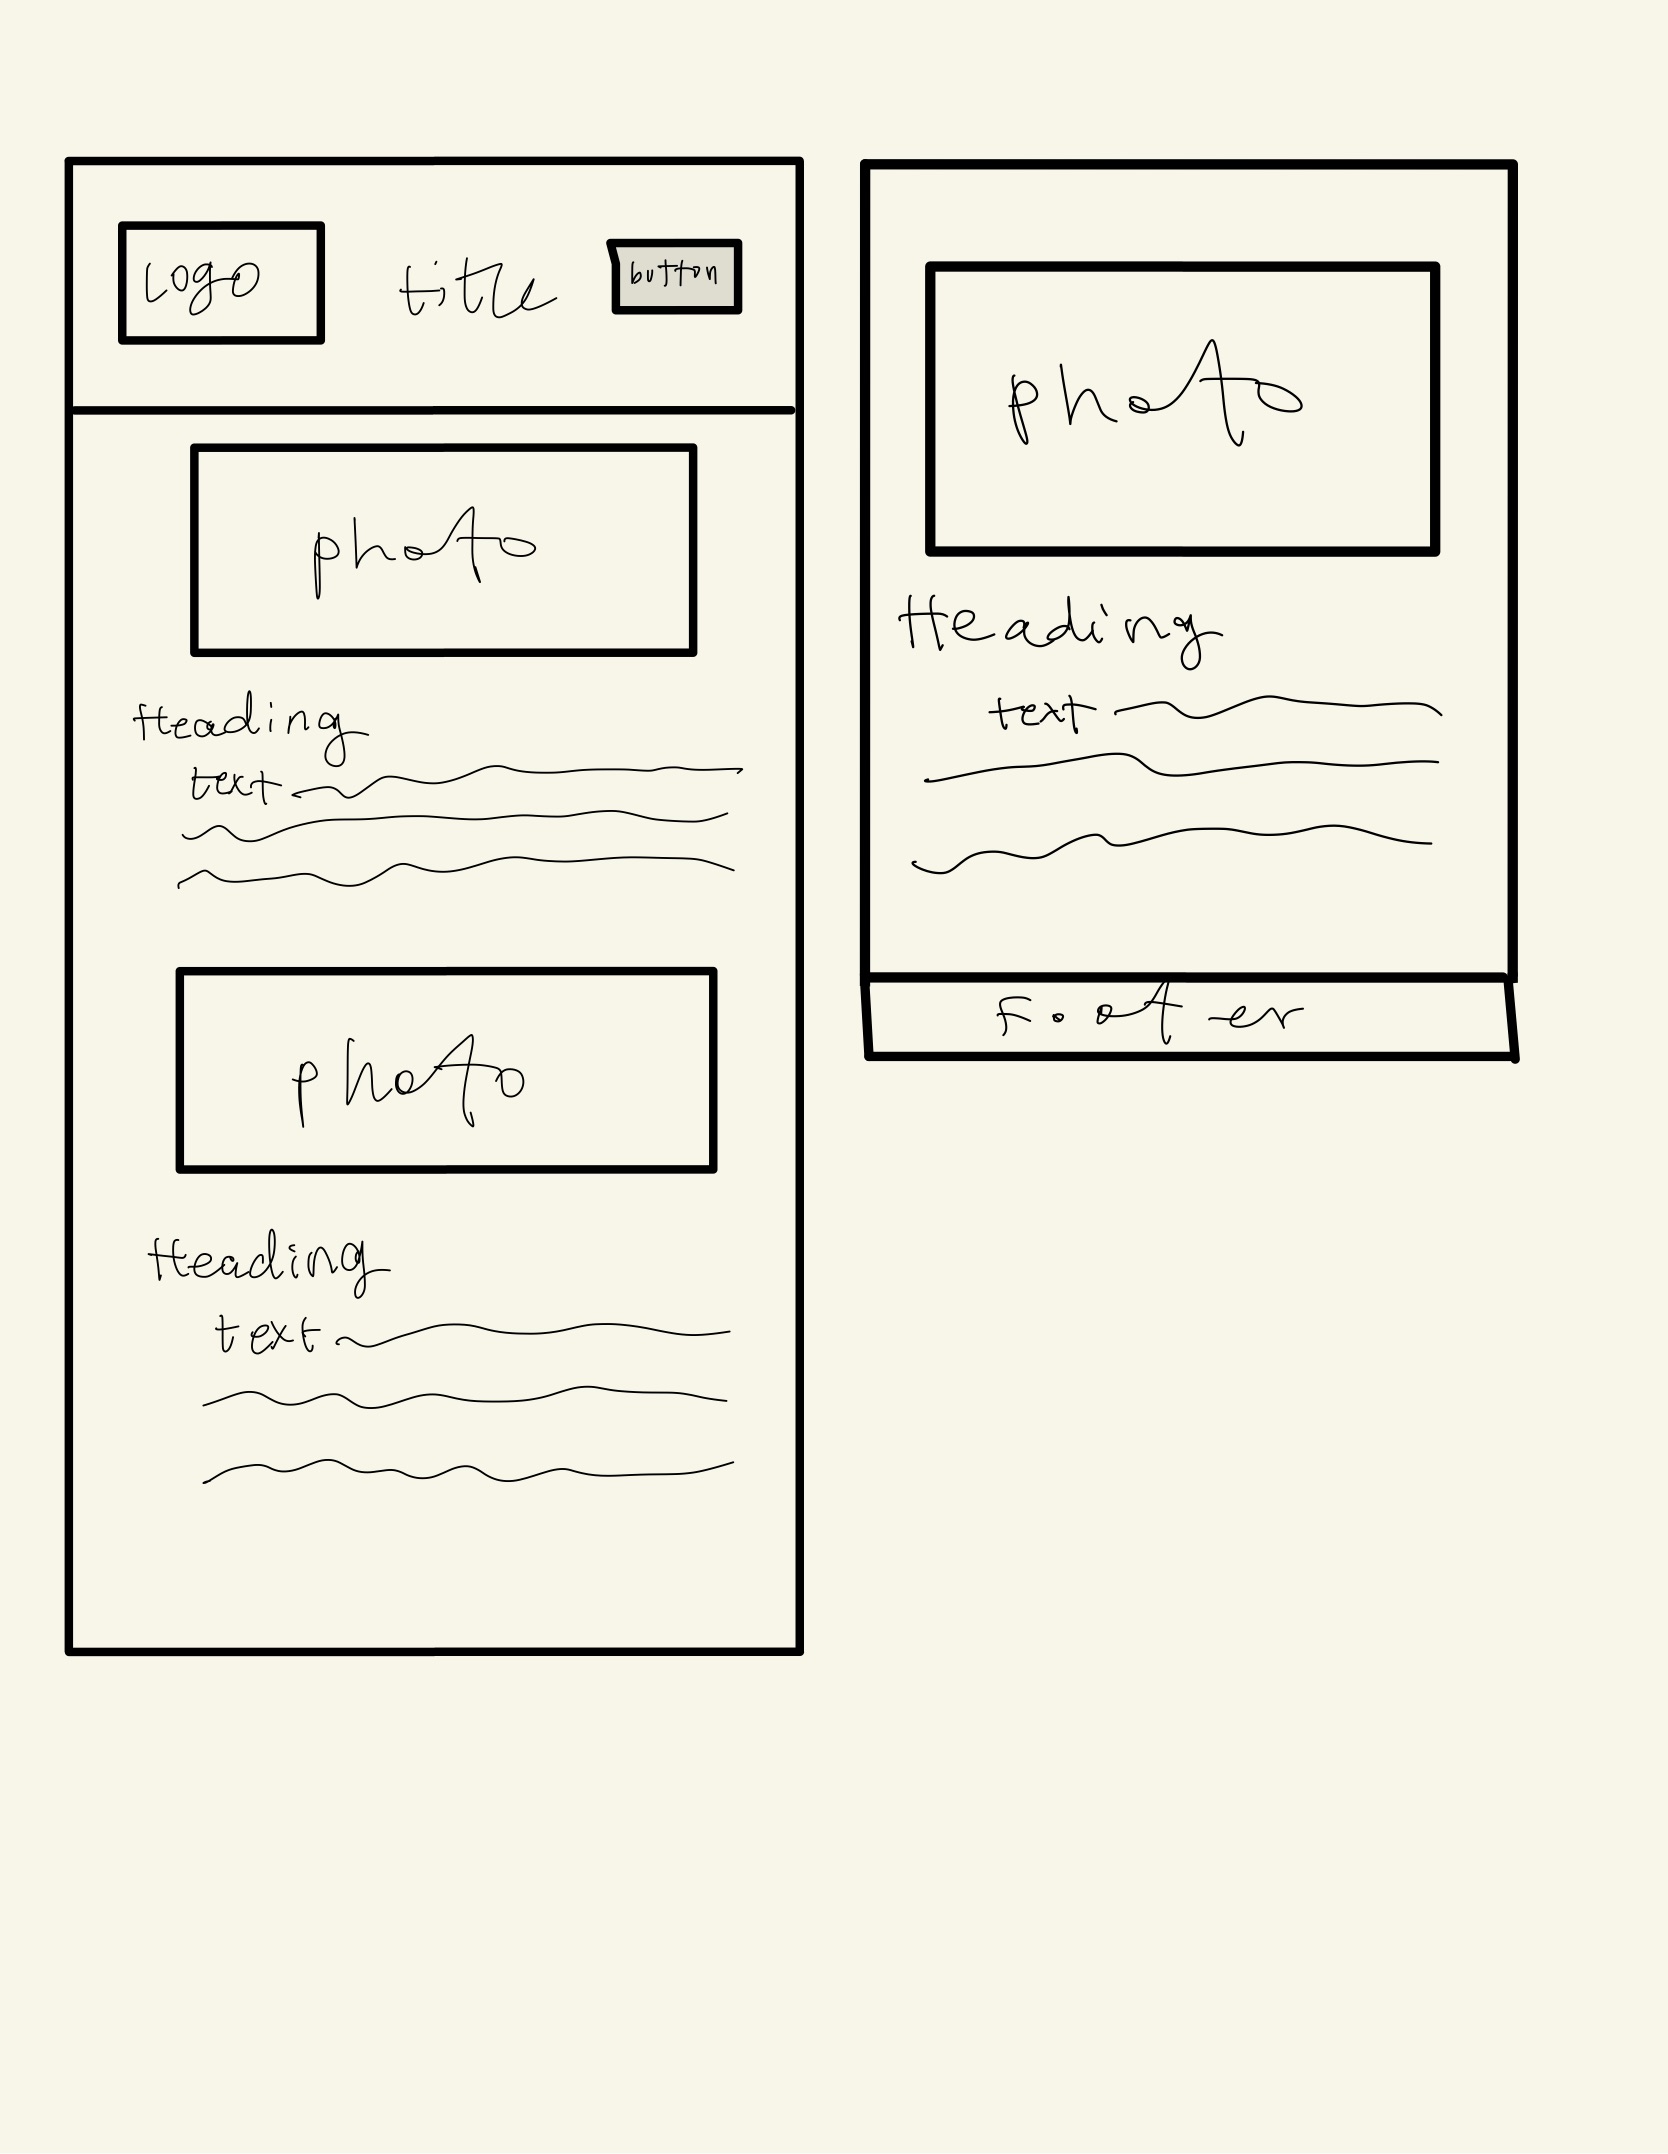 Logo title button
photo
Heading
text
photo
Heading
text
photo
Heading
text
Footer